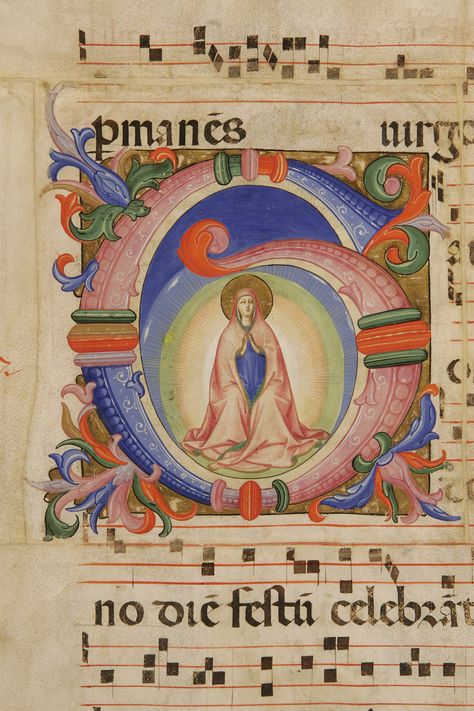 pmanēs uirgo
G
no diē festū celebrāt